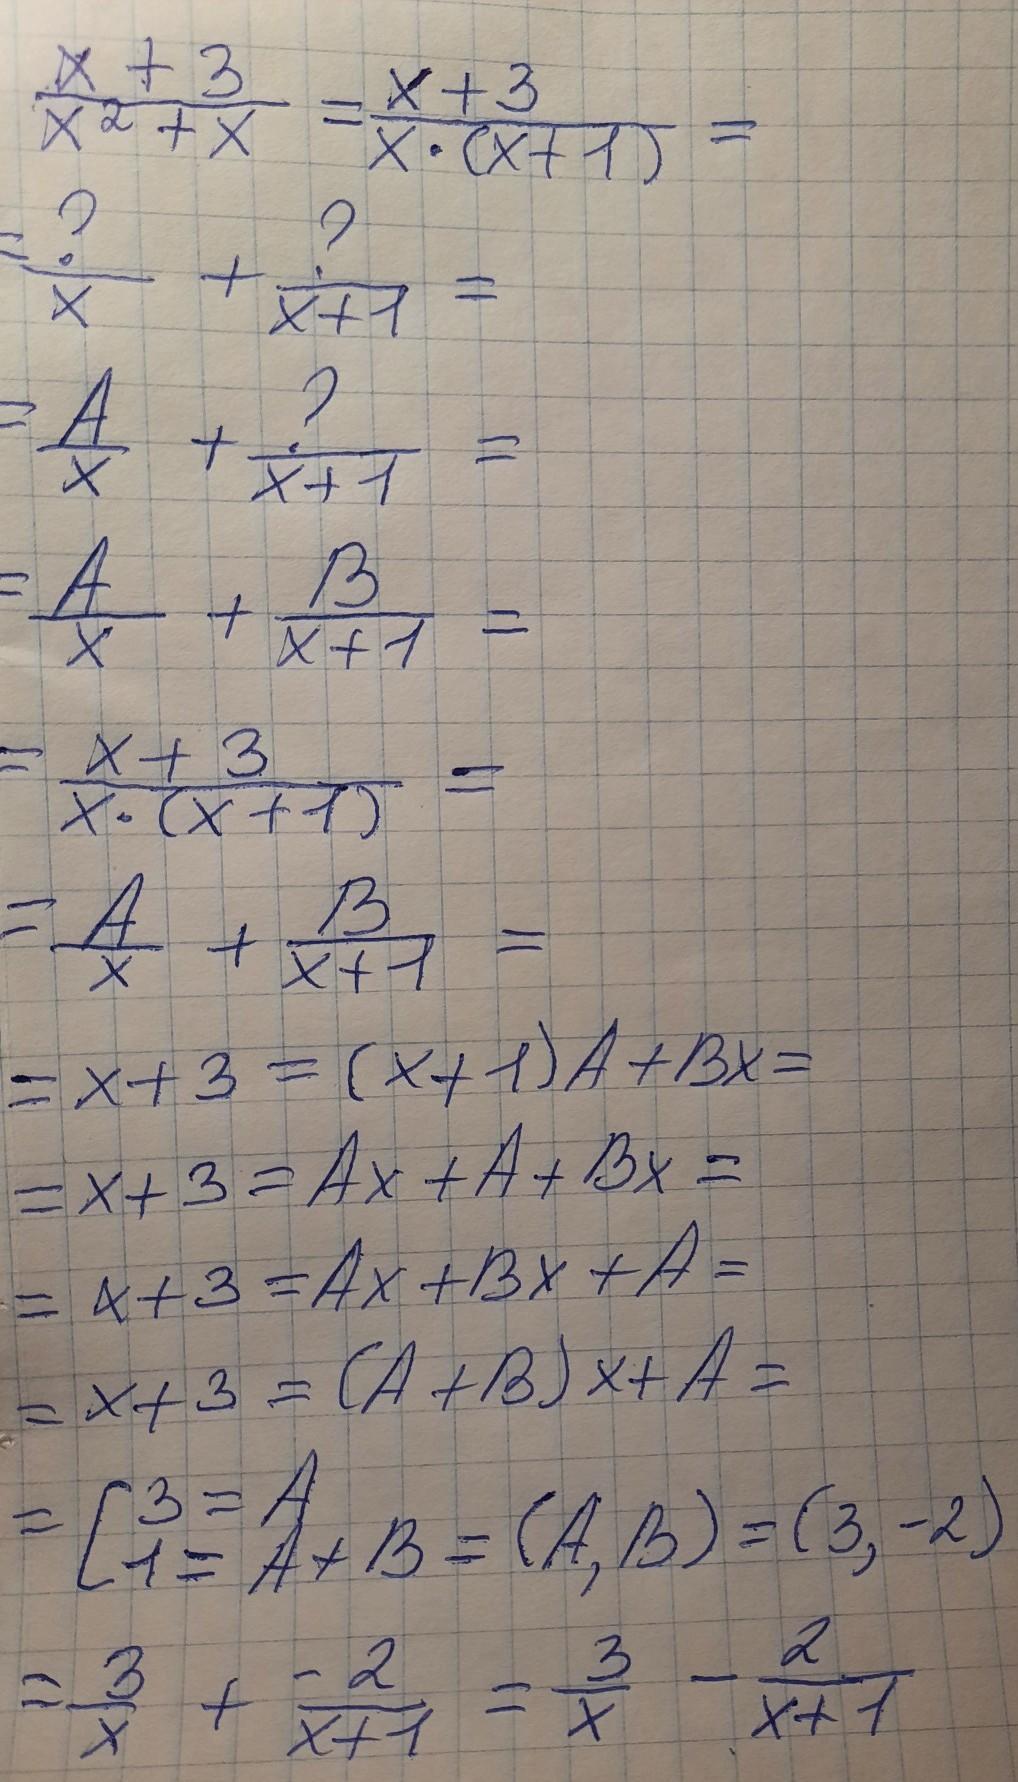 x + 3 / x² + x = x + 3 / x · (x + 1) =
= ? / x + ? / x + 1 =
= A / x + ? / x + 1 =
= A / x + B / x + 1 =
= x + 3 / x · (x + 1) =
= A / x + B / x + 1 =
= x + 3 = (x + 1) A + Bx =
= x + 3 = Ax + A + Bx =
= x + 3 = Ax + Bx + A =
= x + 3 = (A + B) x + A =
= [ 3 = A
1 = A + B = (A, B) = (3, -2)
= 3 / x + -2 / x + 1 = 3 / x - 2 / x + 1